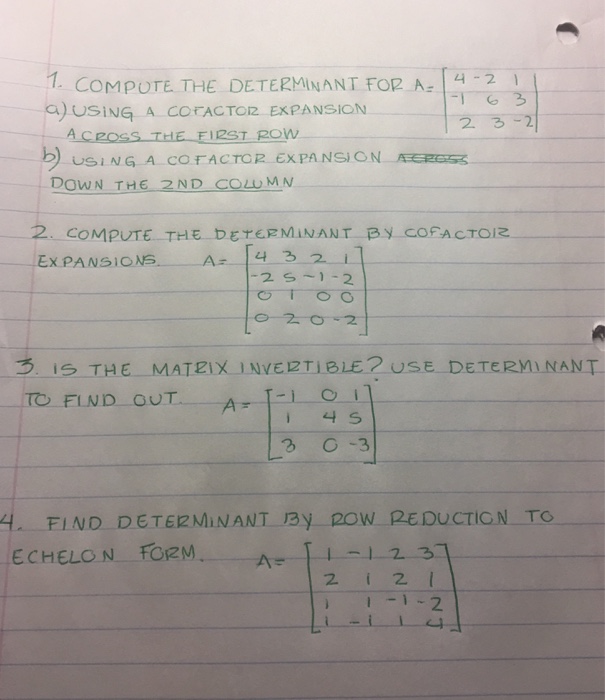 1. COMPUTE THE DETERMINANT FOR A= [4 -2 1
a) USING A COFACTOR EXPANSION -1 6 3
ACROSS THE FIRST ROW 2 3 -2]
b) USING A COFACTOR EXPANSION ACROSS
DOWN THE 2ND COLUMN
2. COMPUTE THE DETERMINANT BY COFACTOR
EXPANSIONS. A= [4 3 2 1
-2 5 -1 -2
0 1 0 0
0 2 0 -2]
3. IS THE MATRIX INVERTIBLE? USE DETERMINANT
TO FIND OUT. A= [-1 0 1
1 4 5
3 0 -3]
4. FIND DETERMINANT BY ROW REDUCTION TO
ECHELON FORM. A= [1 -1 2 3
2 1 2 1
1 1 -1 -2
1 -1 1 4]